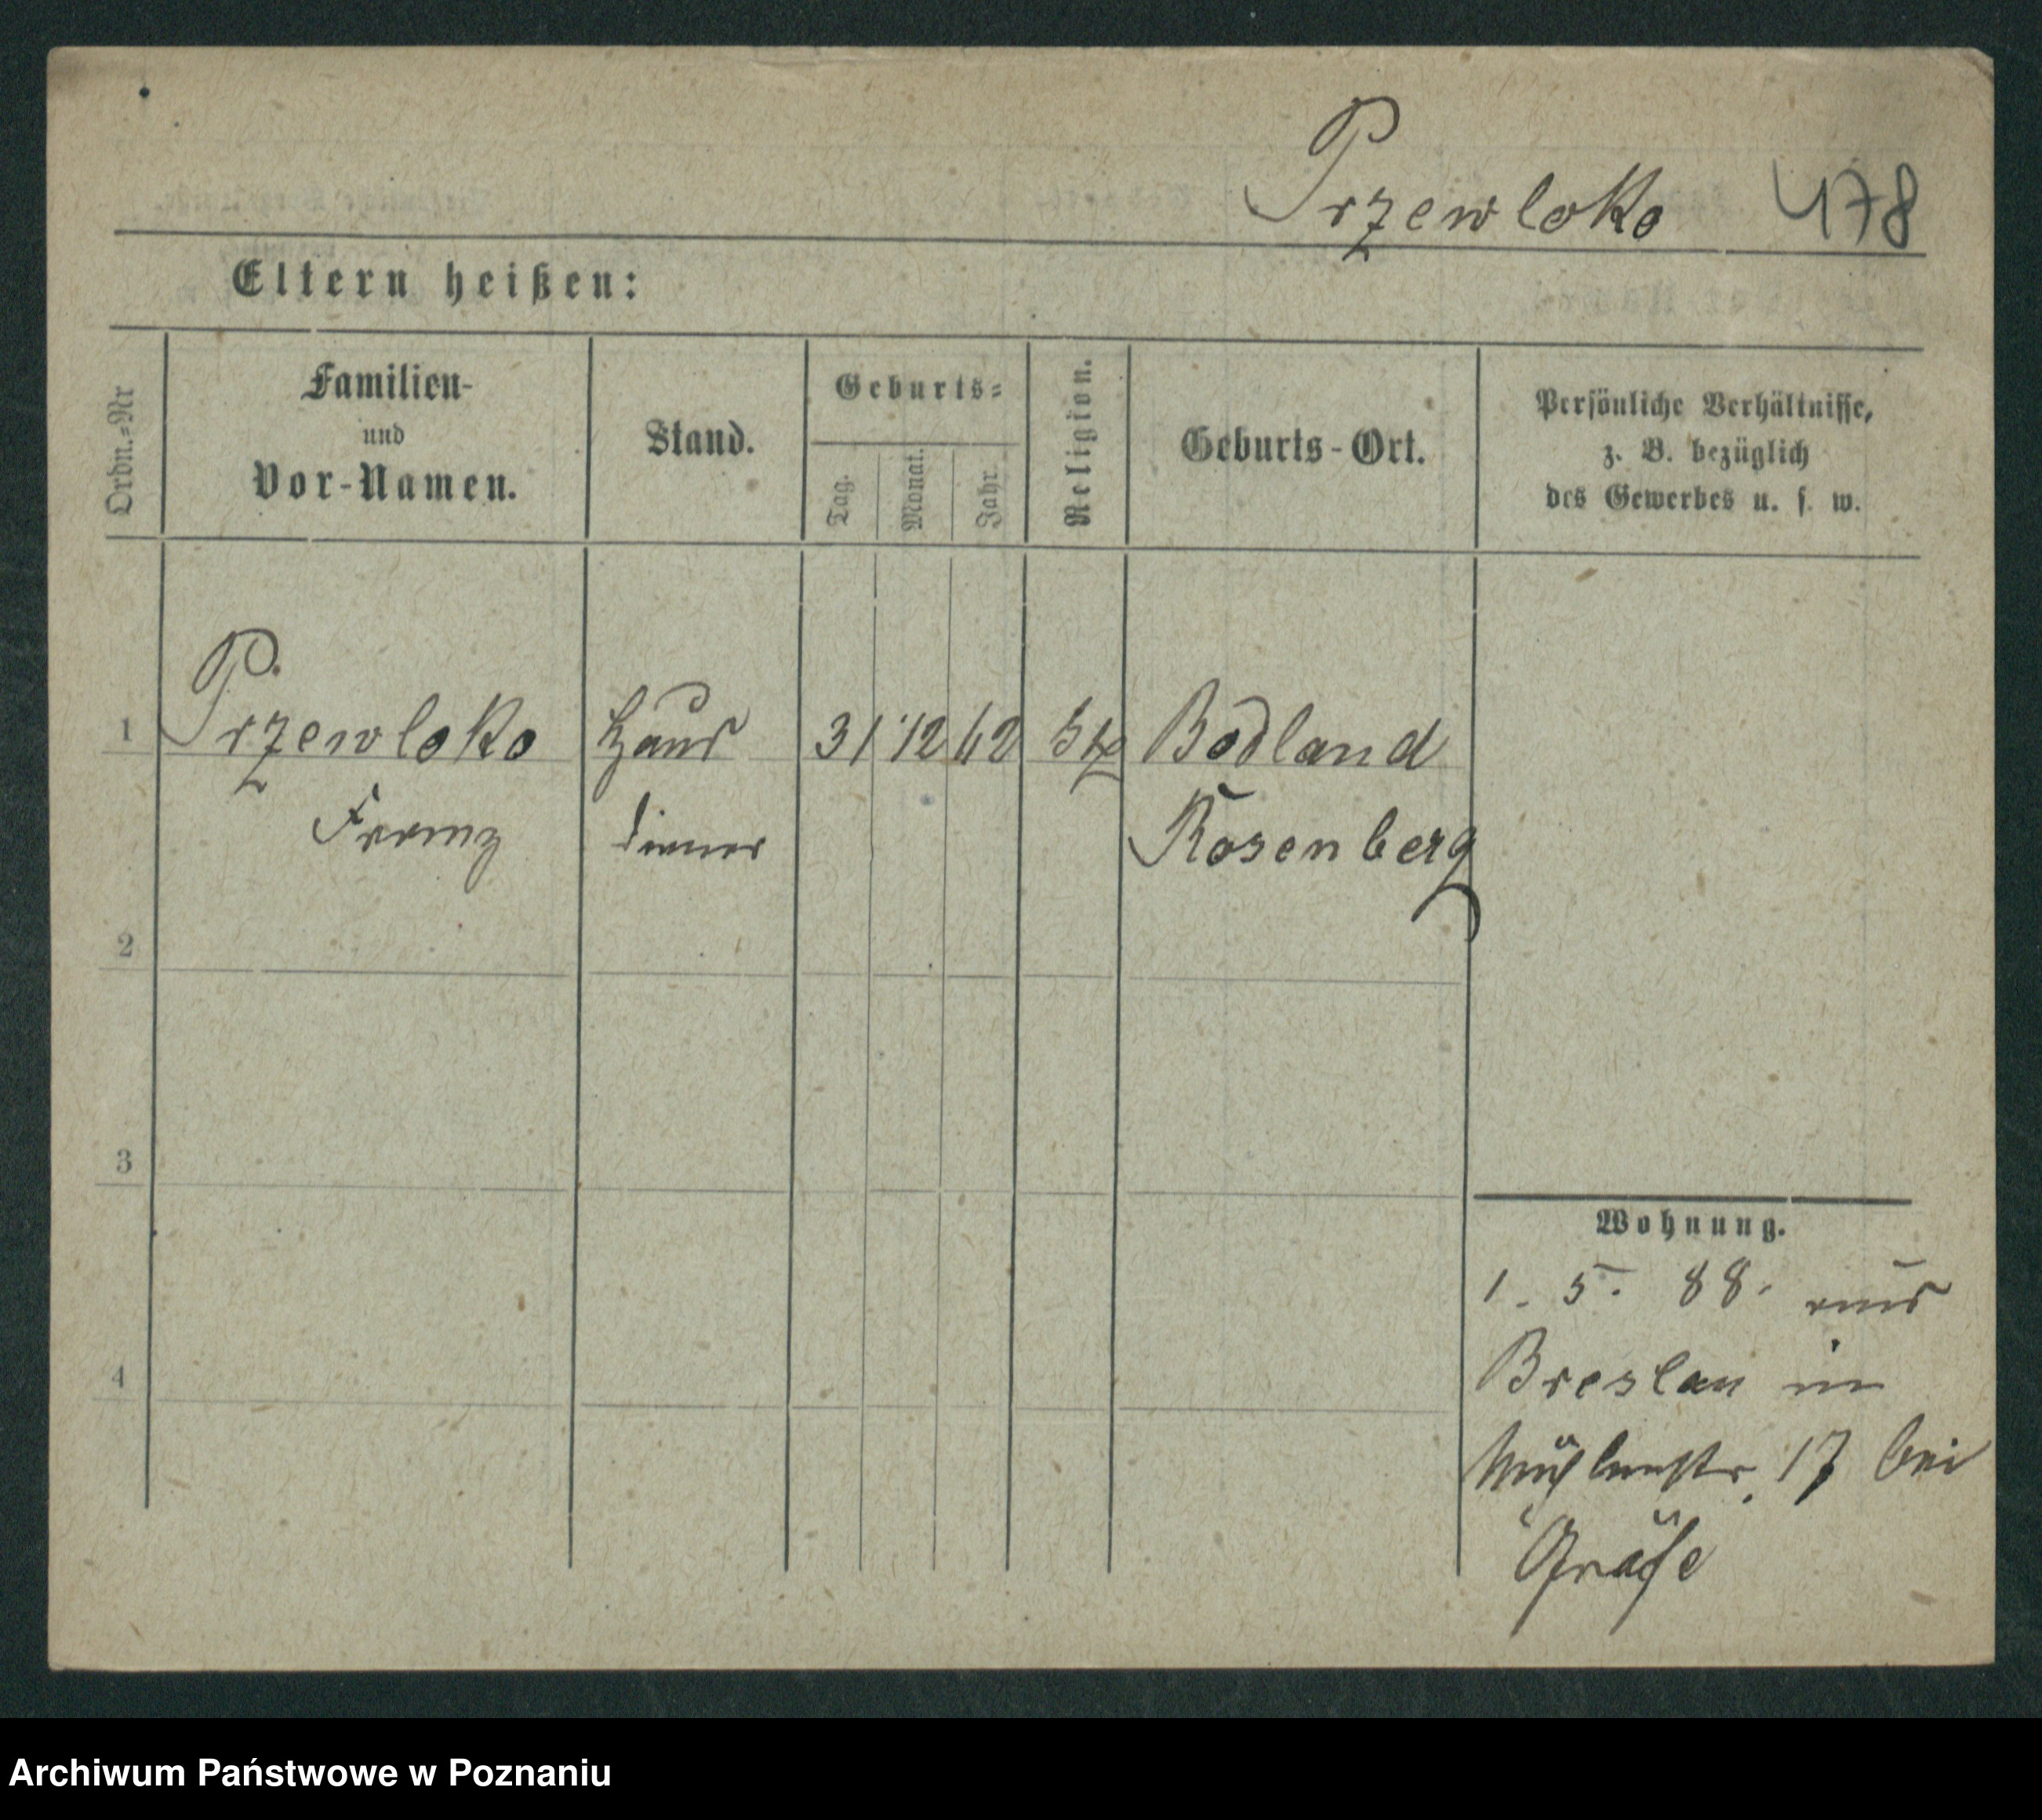 Przewloko 478
Eltern heißen:
Ordn.=Nr
Familien-
und
Vor-Namen.
Stand.
Geburts=
Tag.
Monat.
Jahr.
Religion.
Geburts-Ort.
Persönliche Verhältnisse,
z. B. bezüglich
des Gewerbes u. s. w.
1 Przewloko Haus 31 12 62 Bodland
Franz diener Rosenberg
2
3
4
Wohnung.
1. 5. 88. aus
Breslau in
Mühlenstr. 17 bei
Gräfe
Archiwum Państwowe w Poznaniu